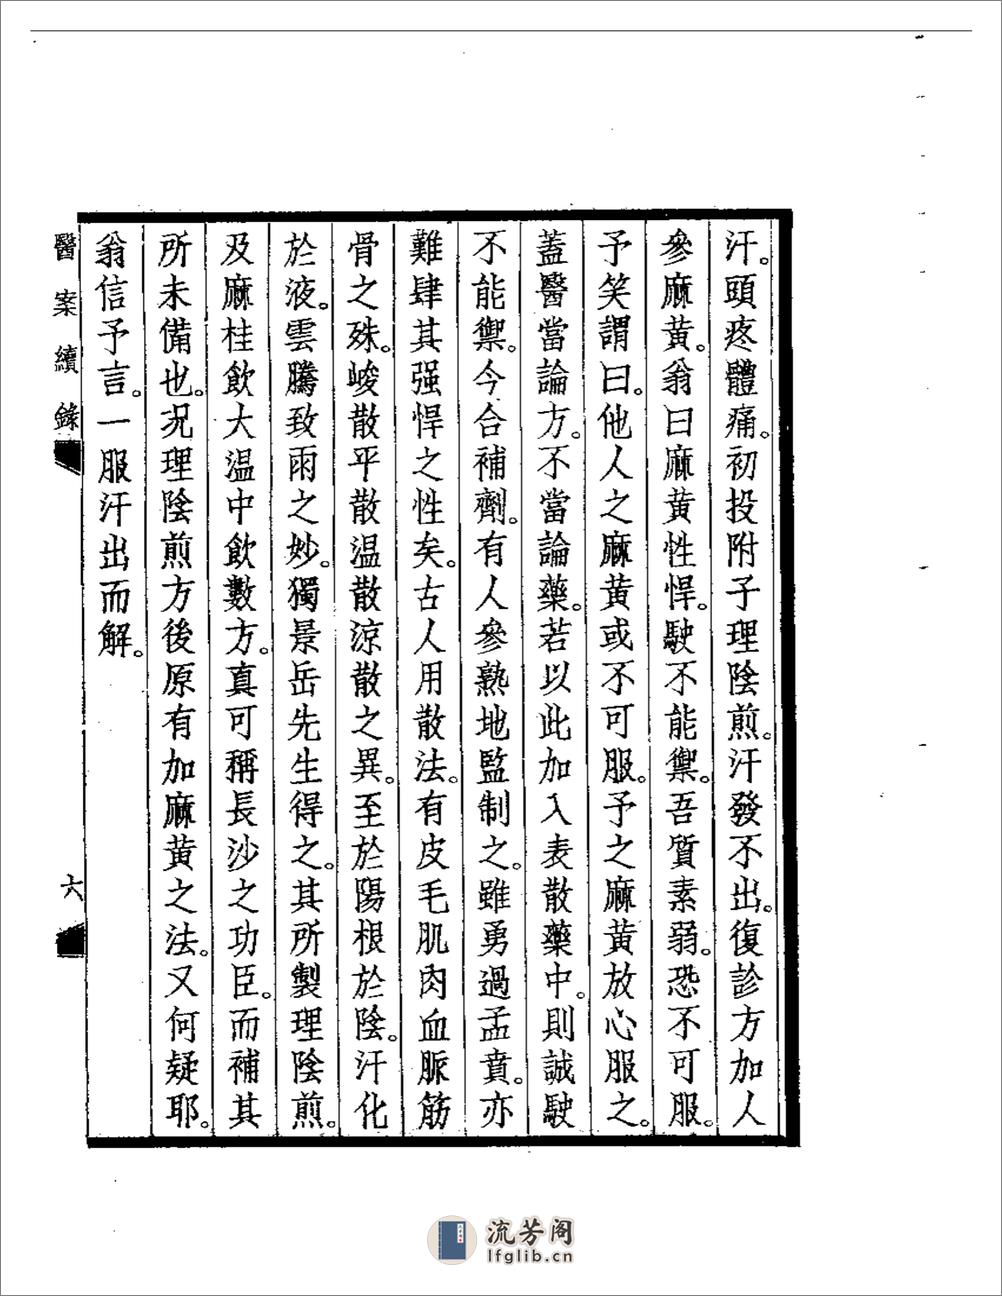 汗。頭疼體痛。初投附子理陰煎。汗發不出。復診方加人
參麻黃。翁曰麻黃性悍。駛不能禦。吾質素弱。恐不可服。
予笑謂曰。他人之麻黃或不可服。予之麻黃放心服之。
蓋醫當論方。不當論藥。若以此加入表散藥中。則誠駛
不能禦。今合補劑。有人參熟地監制之。雖勇過孟賁。亦
難肆其强悍之性矣。古人用散法。有皮毛肌肉血脈筋
骨之殊。峻散平散温散涼散之異。至於陽根於陰。汗化
於液。雲騰致雨之妙。獨景岳先生得之。其所製理陰煎。
及麻桂飲大温中飲數方。真可稱長沙之功臣。而補其
所未備也。况理陰煎方後原有加麻黃之法。又何疑耶。
翁信予言。一服汗出而解。
醫案續錄
六
流芳阁
lfglib.cn